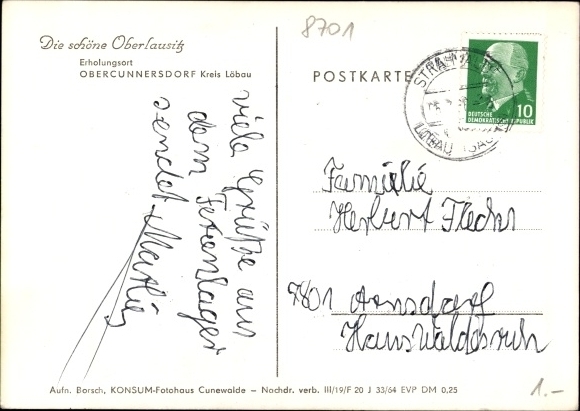 8701
Die schöne Oberlausitz
Erholungsort
OBERCUNNERSDORF Kreis Löbau
POSTKARTE
10
DEUTSCHE
DEMOKRATISCHE REPUBLIK
LÖBAU (SACHS)
viele Grüße aus
dem Ferienlager
sendet
Familie
Herbert Flechs
7801 Arnsdorf
Haus Waldesruh
Aufn. Borsch, KONSUM-Fotohaus Cunewalde – Nochdr. verb. III/19/F 20 J 33/64 EVP DM 0,25
1.-